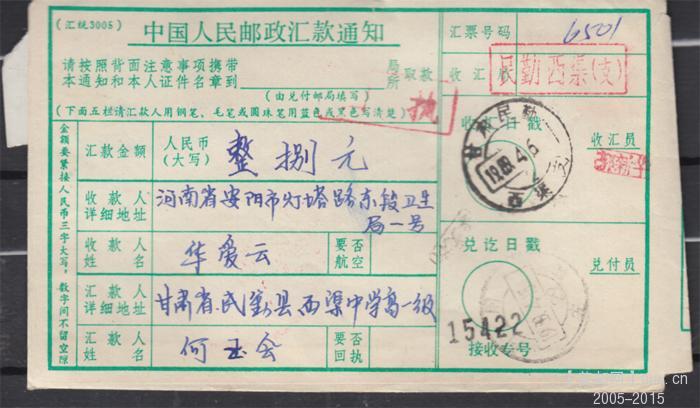 (汇统3005) 中国人民邮政汇款通知
请按照背面注意事项携带
本通知和本人证件名章到 局所 取款
(由兑付邮局填写)
(下面五栏请汇款人用钢笔、毛笔或圆珠笔用蓝色或黑色写清楚)
执
汇款金额 人民币(大写) 整捌元
收款人详细地址 河南省安阳市灯塔路东段卫生
局一号
收款人姓名 华爱云 要否航空
汇款人详细地址 甘肃省民勤县西渠中学高一级
汇款人姓名 何玉会 要否回执
金额要紧接人民币三字大写，数字间不留空隙
汇票号码 6501
收汇局 民勤西渠(支)
收汇日戳 收汇员
甘肃民勤
西渠
兑讫日戳 兑付员
15422
接收专号
.cn
2005-2015